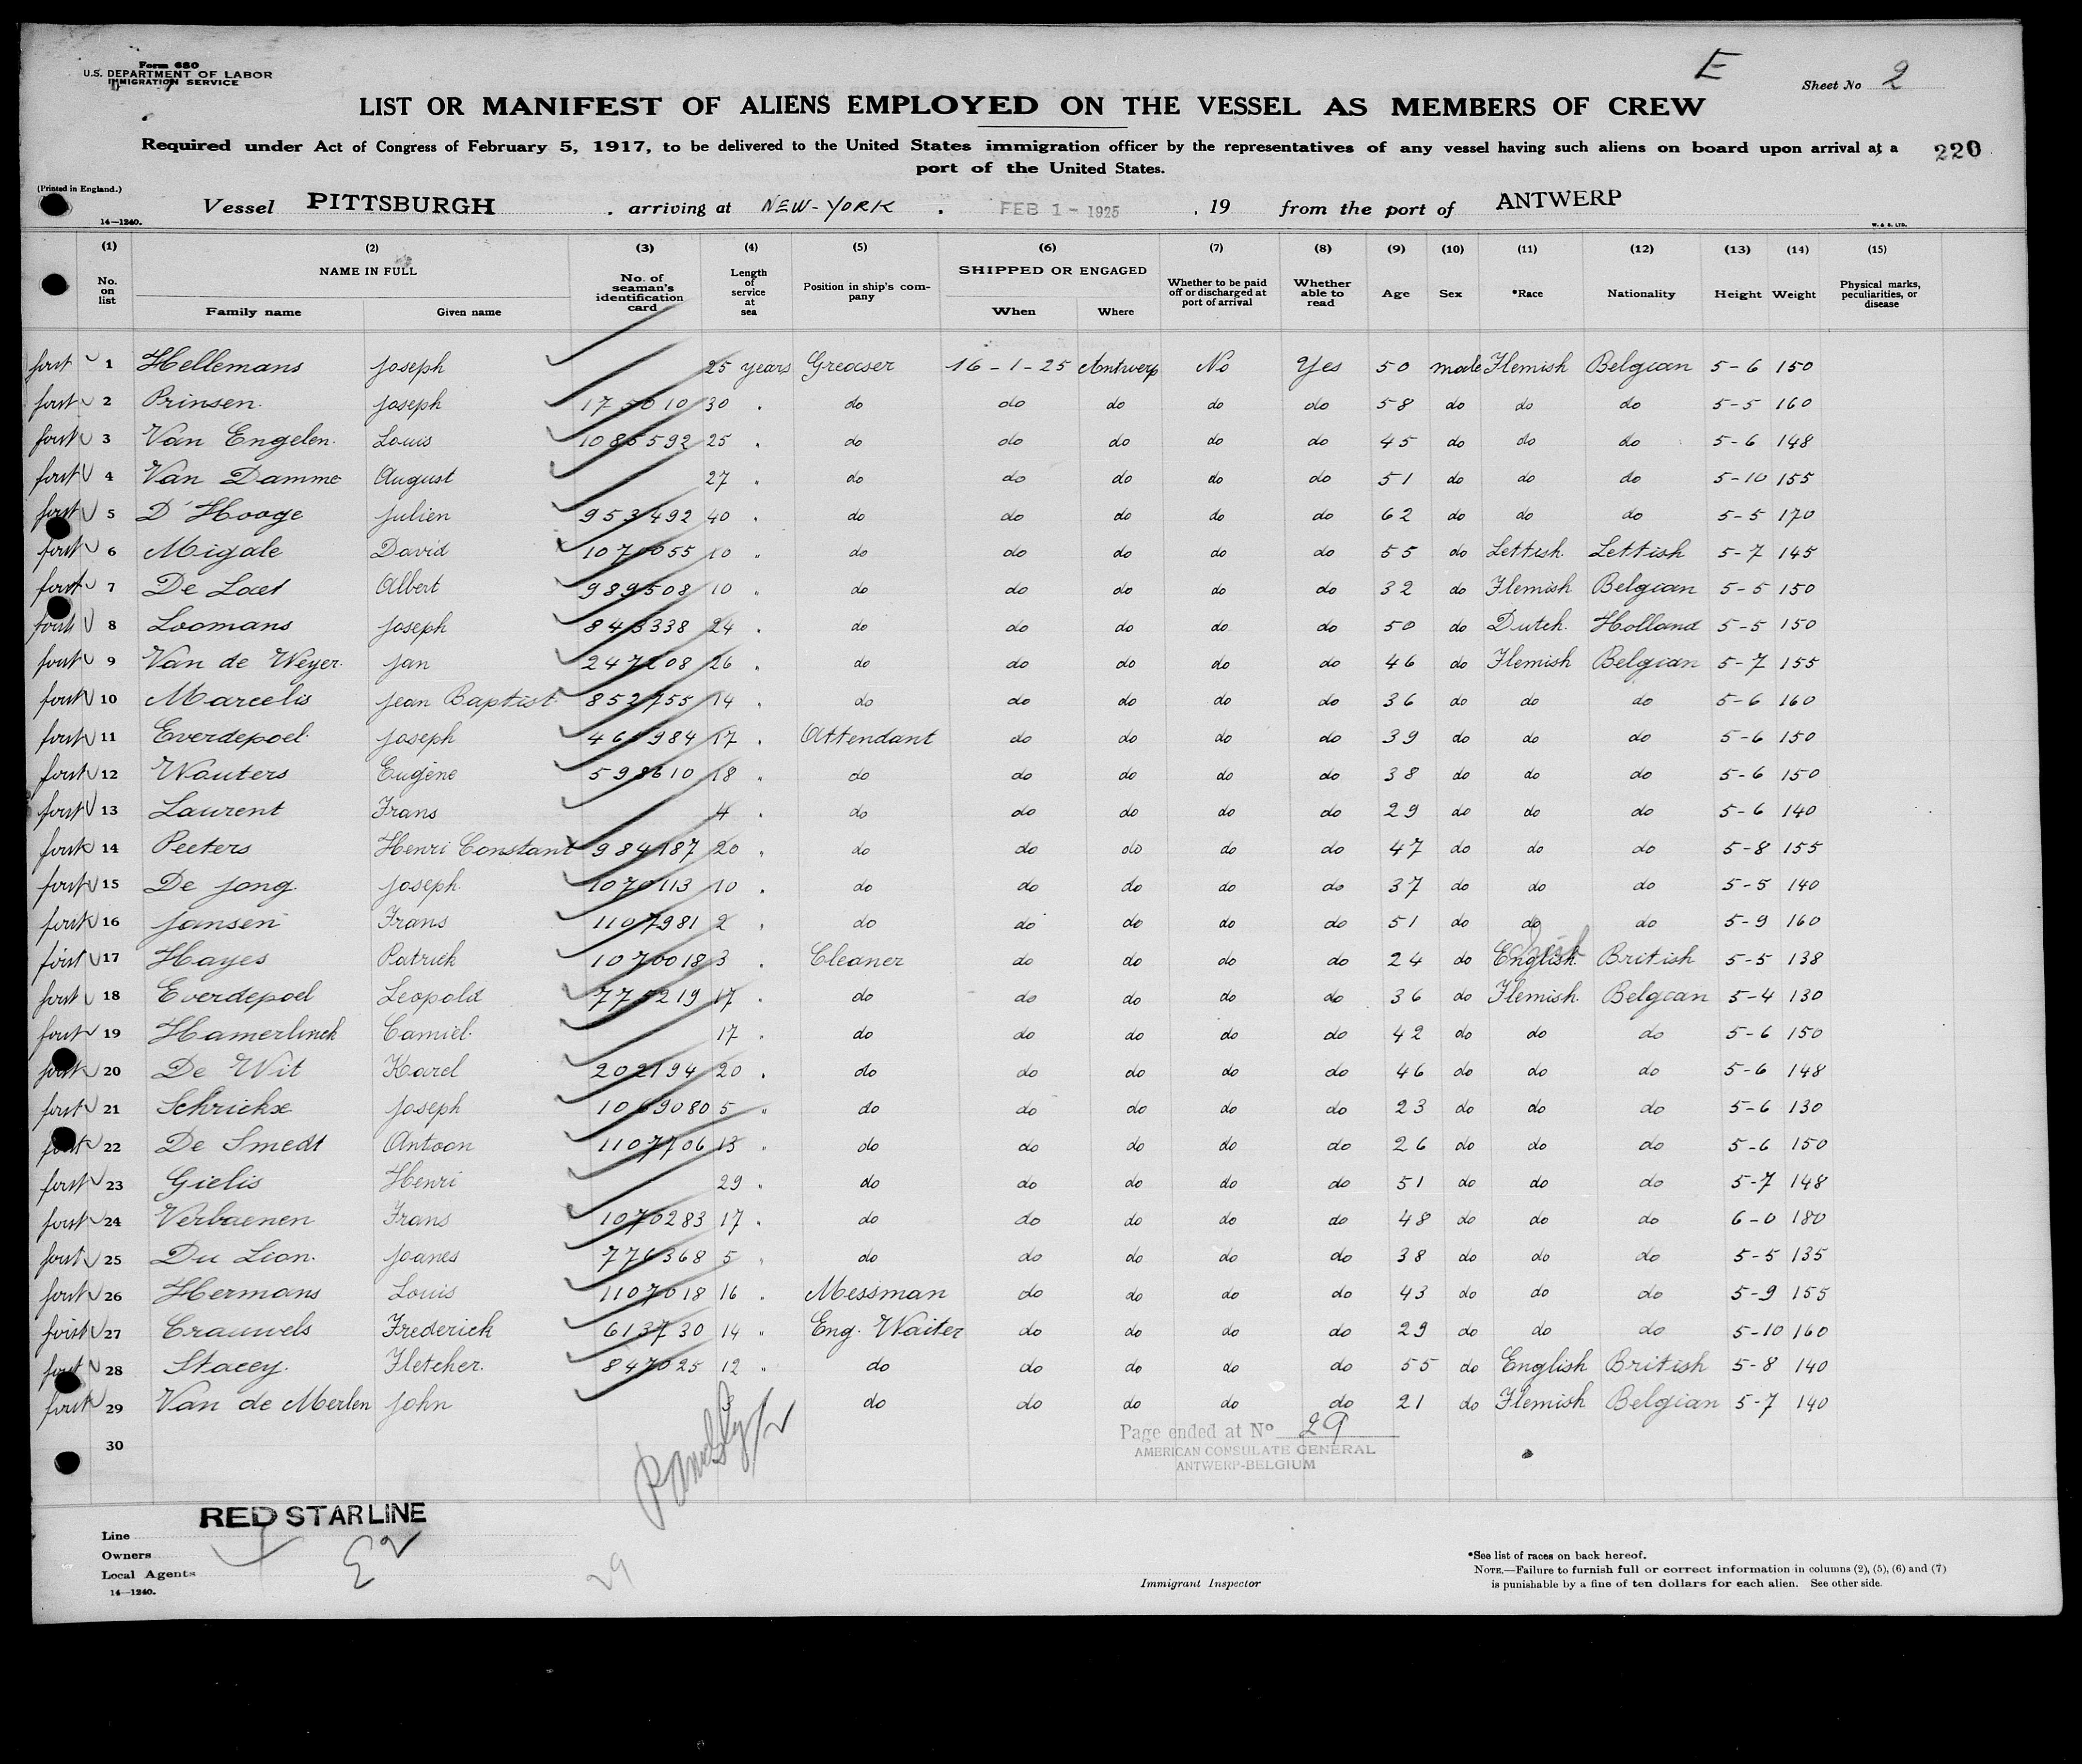 Form 680
U.S. DEPARTMENT OF LABOR
IMMIGRATION SERVICE
E
Sheet No 2
LIST OR MANIFEST OF ALIENS EMPLOYED ON THE VESSEL AS MEMBERS OF CREW
Required under Act of Congress of February 5, 1917, to be delivered to the United States immigration officer by the representatives of any vessel having such aliens on board upon arrival at a
port of the United States.
220
(Printed in England.)
14—1240.
Vessel PITTSBURGH, arriving at NEW-YORK. FEB 1 - 1925, 19 from the port of ANTWERP
W. & S. LTD.
(1) (2) (3) (4) (5) (6) (7) (8) (9) (10) (11) (12) (13) (14) (15)
No. on list NAME IN FULL Family name Given name No. of seaman's identification card Length of service at sea Position in ship's company SHIPPED OR ENGAGED When Where Whether to be paid off or discharged at port of arrival Whether able to read Age Sex *Race Nationality Height Weight Physical marks, peculiarities, or disease
first 1 Hellemans Joseph 25 years Greaser 16-1-25 Antwerp No Yes 50 male Flemish Belgian 5-6 150
first 2 Prinsen Joseph 175010 30 " do do do do do 58 do do do 5-5 160
first 3 Van Engelen Louis 1085592 25 " do do do do do 45 do do do 5-6 148
first 4 Van Damme August 27 " do do do do do 51 do do do 5-10 155
first 5 D'Hooge Julien 953492 40 " do do do do do 62 do do do 5-5 170
first 6 Migale David 1070055 10 " do do do do do 55 do Lettish Lettish 5-7 145
first 7 De Laet Albert 989508 10 " do do do do do 32 do Flemish Belgian 5-5 150
first 8 Loomans Joseph 843338 24 " do do do do do 50 do Dutch Holland 5-5 150
first 9 Van de Weyer Jan 247208 26 " do do do do do 46 do Flemish Belgian 5-7 155
first 10 Marcelis Jean Baptist 852755 14 " do do do do do 36 do do do 5-6 160
first 11 Everdepoel Joseph 461984 17 " Attendant do do do do 39 do do do 5-6 150
first 12 Wauters Eugène 598610 18 " do do do do do 38 do do do 5-6 150
first 13 Laurent Frans 4 " do do do do do 29 do do do 5-6 140
first 14 Peeters Henri Constant 984187 20 " do do do do do 47 do do do 5-8 155
first 15 De Jong Joseph 1070113 10 " do do do do do 37 do do do 5-5 140
first 16 Jansen Frans 1107981 2 " do do do do do 51 do do do 5-9 160
first 17 Hayes Patrick 1070018 3 " Cleaner do do do do 24 do English British 5-5 138
first 18 Everdepoel Leopold 775219 17 " do do do do do 36 do Flemish Belgian 5-4 130
first 19 Hamerlinck Camiel 17 " do do do do do 42 do do do 5-6 150
first 20 De Wit Karel 202194 20 " do do do do do 46 do do do 5-6 148
first 21 Schrickx Joseph 1069080 5 " do do do do do 23 do do do 5-6 130
first 22 De Smedt Antoon 1107706 13 " do do do do do 26 do do do 5-6 150
first 23 Gielis Henri 29 " do do do do do 51 do do do 5-7 148
first 24 Verbaenen Frans 1070283 17 " do do do do do 48 do do do 6-0 180
first 25 Du Lion Joanes 776368 5 " do do do do do 38 do do do 5-5 135
first 26 Hermans Louis 1107018 16 " Messman do do do do 43 do do do 5-9 155
first 27 Crauwels Frederick 613730 14 " Eng. Waiter do do do do 29 do do do 5-10 160
first 28 Stacey Fletcher 847025 12 " do do do do do 55 do English British 5-8 140
first 29 Van de Merlen John 3 do do do do do 21 do Flemish Belgian 5-7 140
30
Page ended at No 29
AMERICAN CONSULATE GENERAL
ANTWERP-BELGIUM
RED STAR LINE
Line
Owners
Local Agents
14—1240.
E2
29
Immigrant Inspector
*See list of races on back hereof.
NOTE.—Failure to furnish full or correct information in columns (2), (5), (6) and (7)
is punishable by a fine of ten dollars for each alien. See other side.